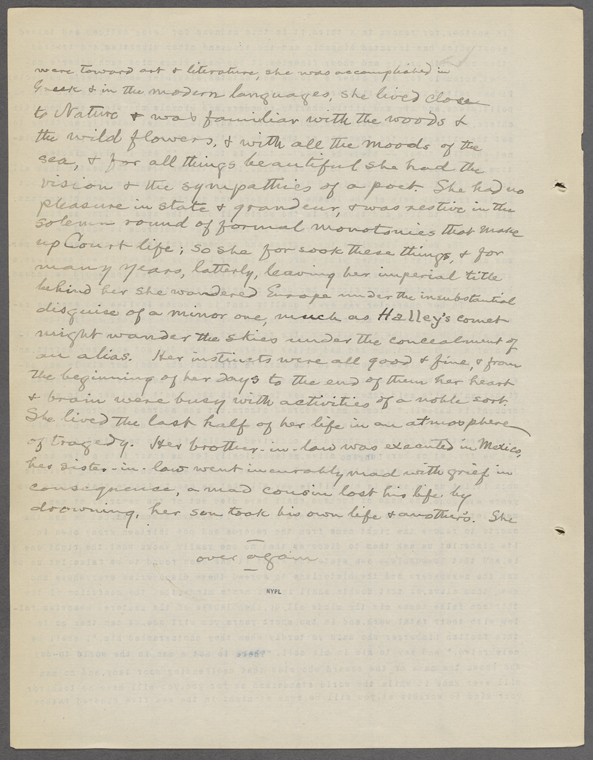 were toward art & literature, she was accomplished in
Greek & in the modern languages, she lived close
to Nature & was familiar with the woods &
the wild flowers, & with all the moods of the
sea, & for all things beautiful she had the
vision & the sympathies of a poet. She had no
pleasure in state & grandeur, & was restive in the
solemn round of formal monotonies that make
up Court life; so she forsook these things, & for
many years, latterly, leaving her imperial title
behind her she wandered Europe under the insubstantial
disguise of a minor one, much as Halley's comet
might wander the skies under the concealment of
an alias. Her instincts were all good & fine, & from
the beginning of her days to the end of them her heart
& brain were busy with activities of a noble sort
She lived the last half of her life in an atmosphere
of tragedy. Her brother-in-law was executed in Mexico,
her sister-in-law went incurably mad with grief in
consequence, a mad cousin lost his life by
drowning, her son took his own life & another's. She
over again
NYPL